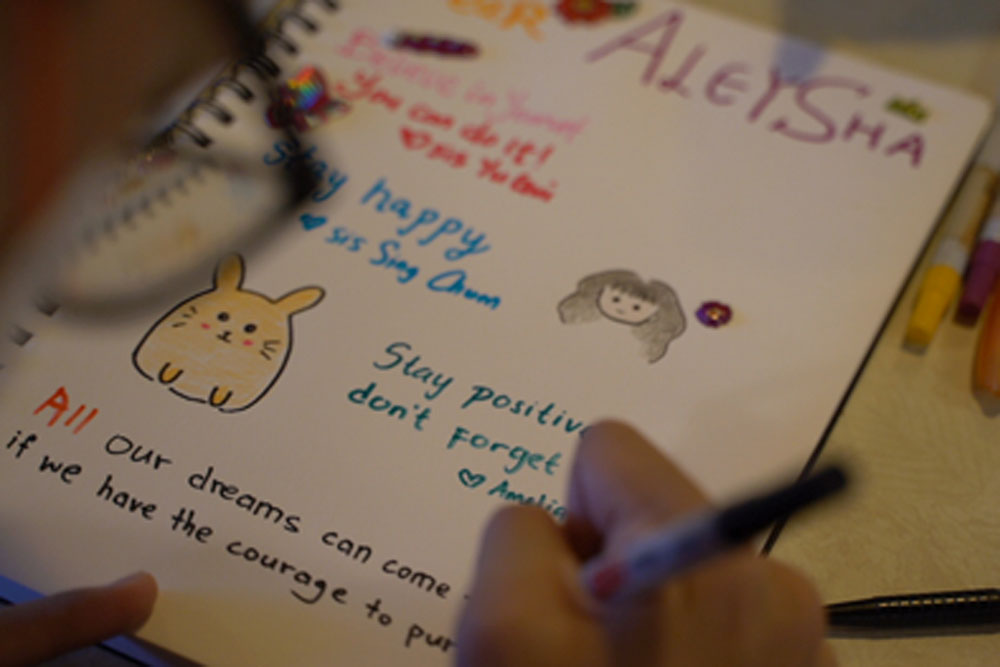 ALEYSHA
Believe in
You can do it!
sis
Stay happy
sis Sing Chum
Stay positive
don't forget
Amelia
All Our dreams can come
if we have the courage to pur